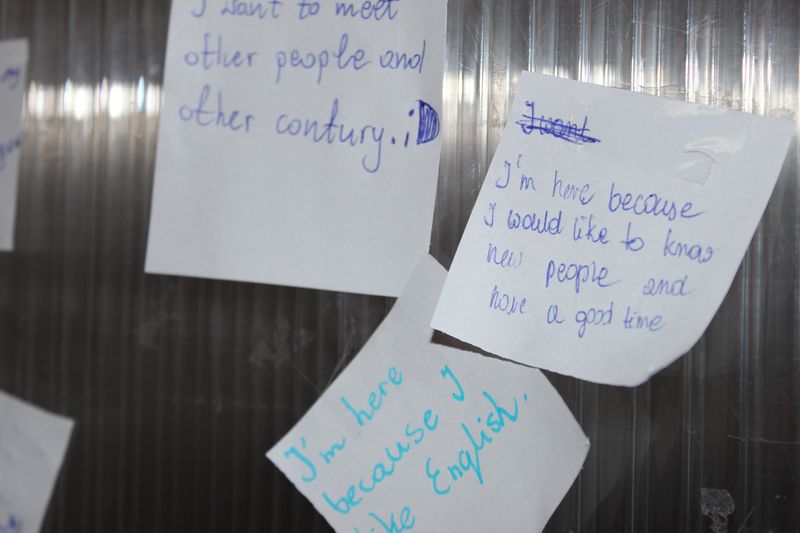 I want to meet
other people and
other contury. ;D
I want
I'm here because
I would like to know
new people and
have a good time
I'm here
because I
like English.